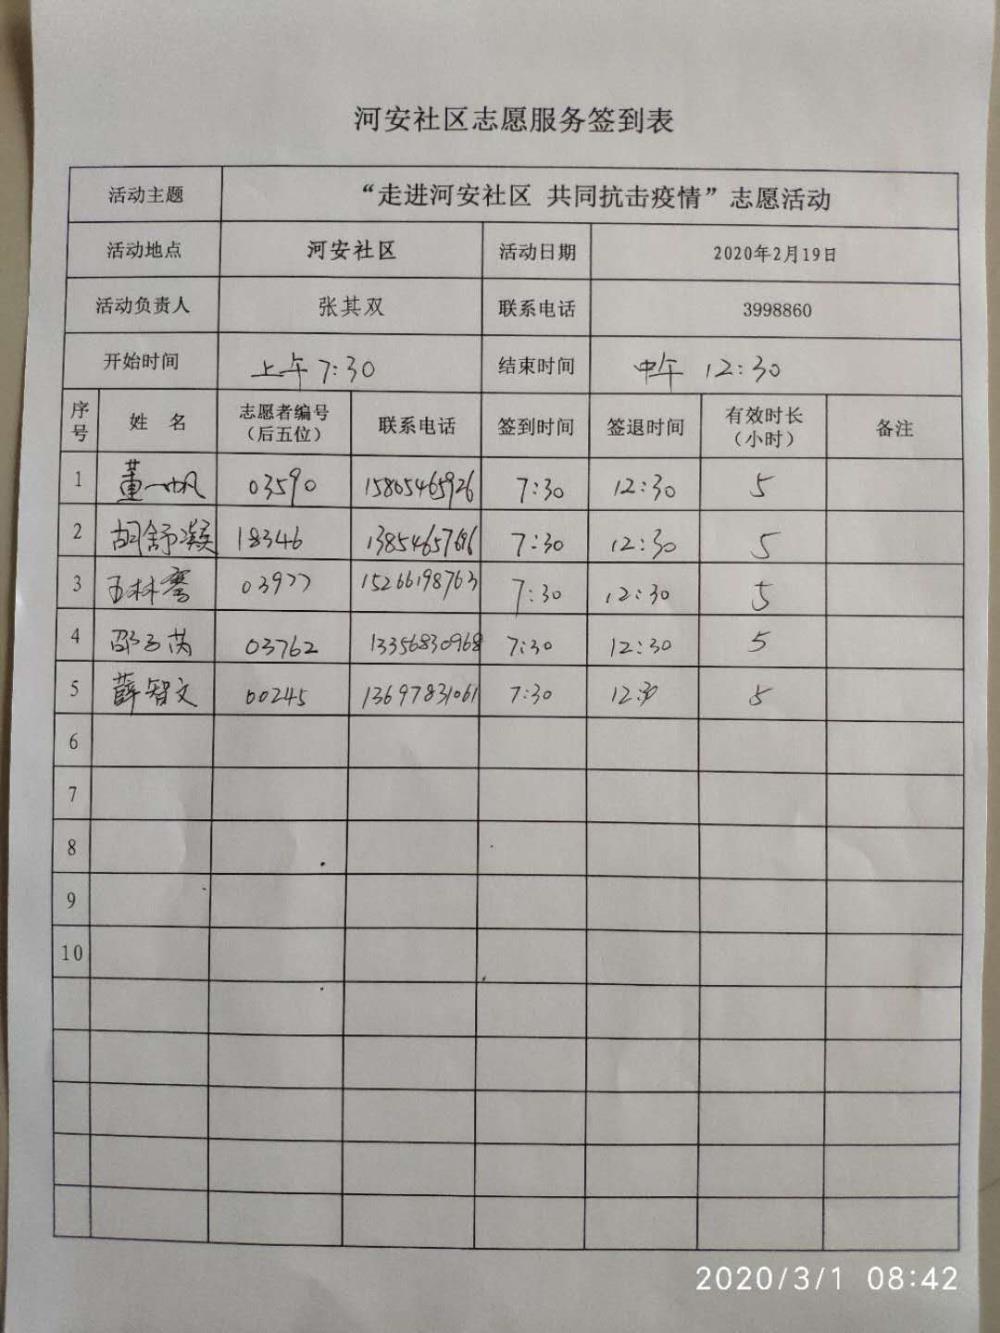 河安社区志愿服务签到表
活动主题 “走进河安社区 共同抗击疫情”志愿活动
活动地点 河安社区 活动日期 2020年2月19日
活动负责人 张其双 联系电话 3998860
开始时间 上午 7:30 结束时间 中午 12:30
序号 姓 名 志愿者编号（后五位） 联系电话 签到时间 签退时间 有效时长（小时） 备注
1 董一帆 03590 15865465926 7:30 12:30 5
2 胡舒凝 18346 7:30 12:30 5
3 03977 15266198763 7:30 12:30 5
4 邵子芮 03762 13356830968 7:30 12:30 5
5 薛智文 00245 13697831061 7:30 12:30 5
6
7
8
9
10
2020/3/1 08:42